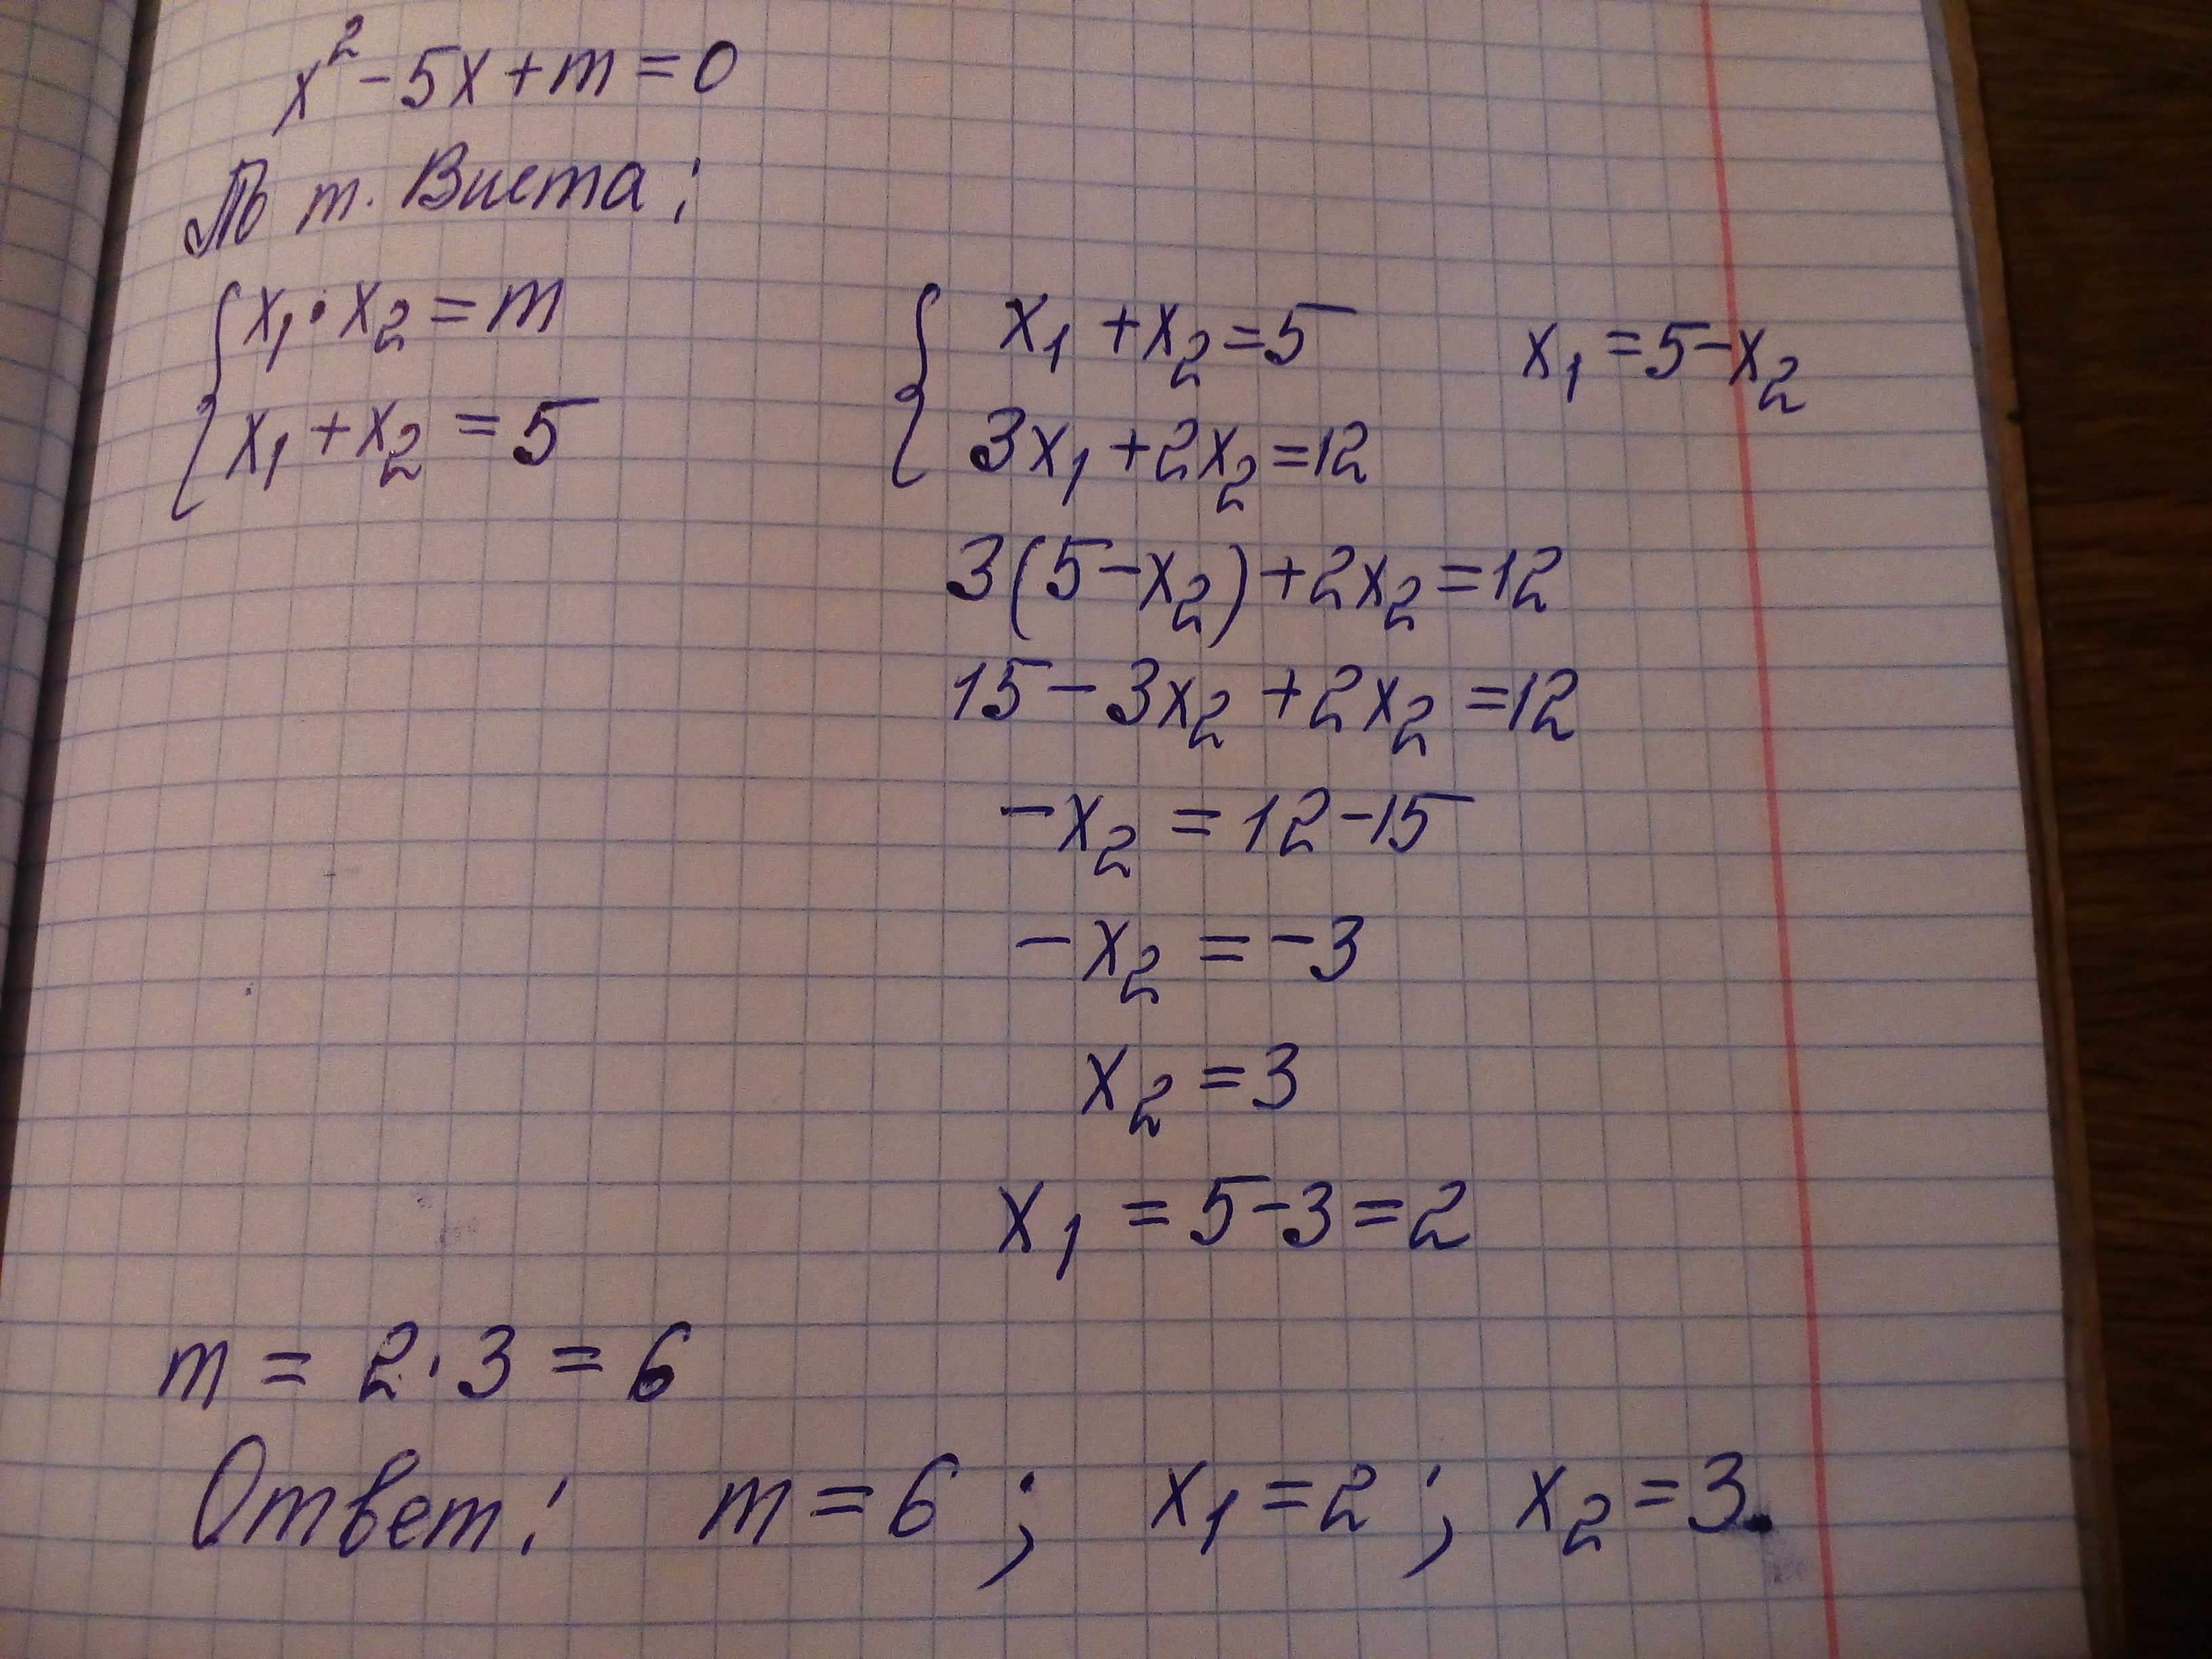 x² - 5x + m = 0
По т. Виета:
x₁ · x₂ = m
x₁ + x₂ = 5
x₁ + x₂ = 5    x₁ = 5 - x₂
3x₁ + 2x₂ = 12
3(5 - x₂) + 2x₂ = 12
15 - 3x₂ + 2x₂ = 12
-x₂ = 12 - 15
-x₂ = -3
x₂ = 3
x₁ = 5 - 3 = 2
m = 2 · 3 = 6
Ответ: m = 6; x₁ = 2; x₂ = 3.